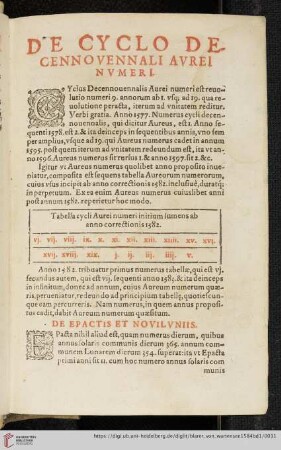 DE CYCLO DE-
CENNOVENNALI AVREI
NVMERI.
CYclus Decennouennalis Aurei numeri est reuo-
lutio numeri 19. annorum ab 1. vsq; ad 19. qua re-
uolutione peracta, iterum ad vnitatem reditur.
Verbi gratia. Anno 1577. Numerus cycli decen-
nouennalis, qui dicitur Aureus, est 1. Anno se-
quenti 1578. est 2. & ita deinceps in sequentibus annis, vno sem
per amplius, vsque ad 19. qui Aureus numerus cadet in annum
1595. post quem iterum ad vnitatem redeundum est, ita vt an-
no 1596. Aureus numerus sit rursus 1. & anno 1597. sit 2. &c.
Igitur vt Aureus numerus quolibet anno proposito inue-
niatur, composita est sequens tabella Aureorum numerorum,
cuius vsus incipit ab anno correctionis 1582. inclusiuè, duratq;
in perpetuum. Ex ea enim Aureus numerus cuiuslibet anni
post annum 1582. reperietur hoc modo.
Tabella cycli Aurei numeri initium sumens ab
anno correctionis 1582.
vj. vij. viij. ix. x. xj. xij. xiij. xiiij. xv. xvj.
xvij. xviij. xix. j. ij. iij. iiij. v.
Anno 1582. tribuatur primus numerus tabellæ, qui est vj.
secundus autem, qui est vij. sequenti anno 1583. & ita deinceps
in infinitum, donec ad annum, cuius Aureum numerum quæ-
ris, perueniatur, redeundo ad principium tabellæ, quotiescun-
que eam percurreris. Nam numerus, in quem annus proposi-
tus cadit, dabit Aureum numerum quæsitum.
DE EPACTIS ET NOVILVNIIS.
EPacta nihil aliud est, quam numerus dierum, quibus
annus solaris communis dierum 365. annum com-
munem Lunarem dierum 354. superat: ita vt Epacta
primi anni sit 11. cum hoc numero annus solaris com
munis